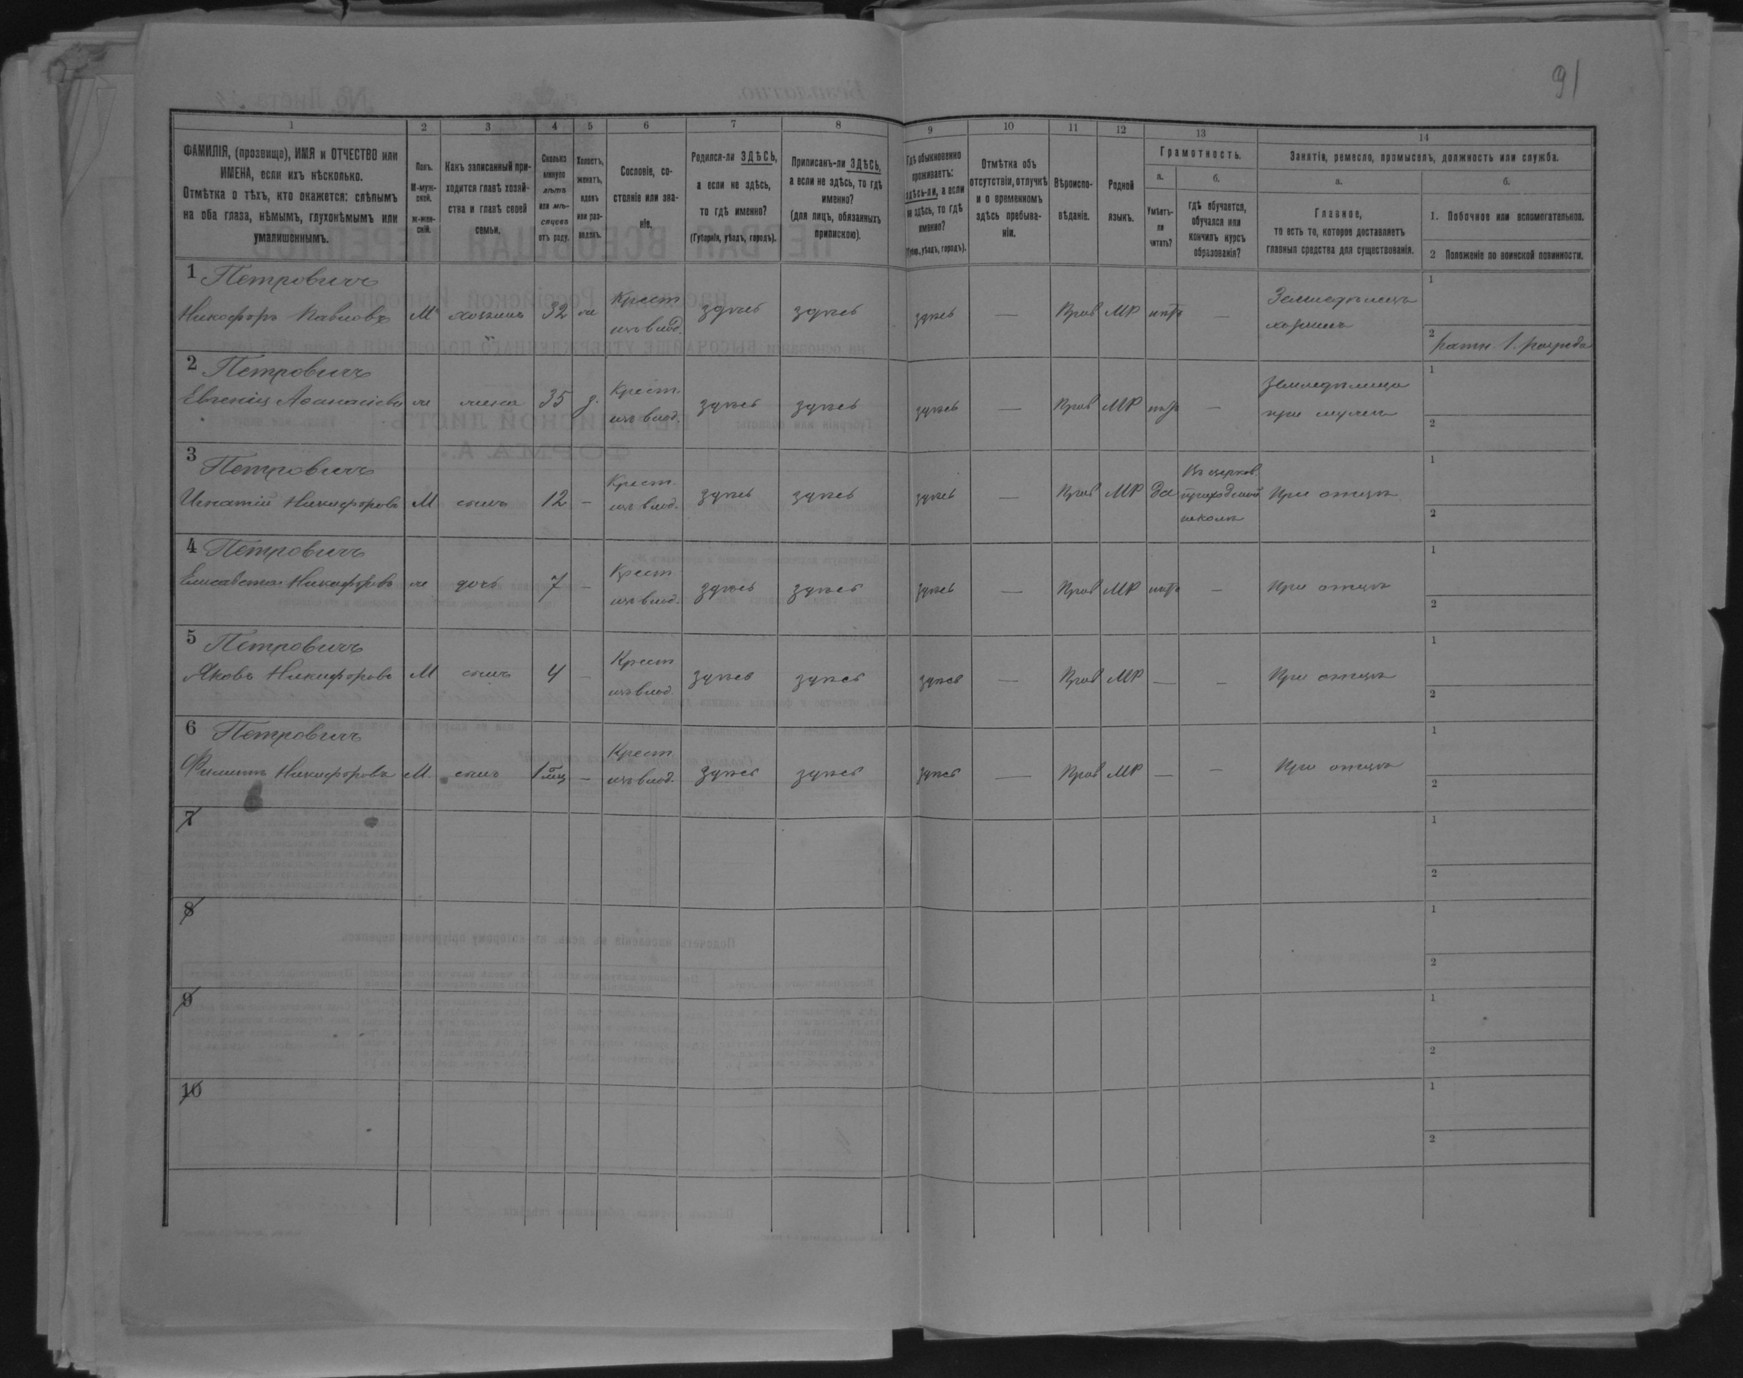 91
1 2 3 4 5 6 7 8 9 10 11 12 13 14
ФАМИЛІЯ, (прозвище), ИМЯ и ОТЧЕСТВО или
ИМЕНА, если ихъ нѣсколько.
Отмѣтка о тѣхъ, кто окажется: слѣпымъ
на оба глаза, нѣмымъ, глухонѣмымъ или
умалишоннымъ.
Полъ.
М-муж-
ской.
Ж-жен-
скій.
Какъ записанный при-
ходится главѣ хозяй-
ства и главѣ своей
семьи.
Сколько
минуло
лѣтъ
или мѣ-
сяцевъ
отъ роду.
Холостъ,
женатъ,
вдовъ
или раз-
веденъ.
Сословіе, со-
стояніе или зва-
ніе.
Родился-ли ЗДѢСЬ,
а если не здѣсь,
то гдѣ именно?
(Губернія, уѣздъ, городъ).
Приписанъ-ли ЗДѢСЬ,
а если не здѣсь, то гдѣ
именно?
(для лицъ, обязанныхъ
припискою).
Гдѣ обыкновенно
проживаетъ:
здѣсь-ли, а если
не здѣсь, то гдѣ
именно?
(Губ., уѣздъ, городъ).
Отмѣтка объ
отсутствіи, отлучкѣ
и о временномъ
здѣсь пребыва-
ніи.
Вѣроиспо-
вѣданіе.
Родной
языкъ.
Грамотность.
а.
Умѣетъ-
ли
читать?
б.
гдѣ обучается,
обучался или
кончилъ курсъ
образованія?
Занятіе, ремесло, промыселъ, должность или служба.
а.
Главное,
то есть то, которое доставляетъ
главныя средства для существованія.
б.
1. Побочное или вспомогательное.
2 Положеніе по воинской повинности.
1 Петровичъ
Никифоръ Павловъ М хозяинъ 32 ж Крест. изъ влад. здѣсь здѣсь здѣсь — Прав МР нѣтъ — Земледѣлецъ
хозяинъ
1
2 ратн. 1. разряда
2 Петровичъ
Евгенія Аѳанасіева ж жена 35 з. Крест. изъ влад. здѣсь здѣсь здѣсь — Прав МР нѣтъ — земледѣлица
при мужѣ
1
2
3 Петровичъ
Игнатій Никифоровъ М сынъ 12 — Крест. изъ влад. здѣсь здѣсь здѣсь — Прав МР да Въ церков.
приходской
школѣ
При отцѣ
1
2
4 Петровичъ
Елисавета Никифорова ж дочь 7 — Крест. изъ влад. здѣсь здѣсь здѣсь — Прав МР нѣтъ — При отцѣ
1
2
5 Петровичъ
Яковъ Никифоровъ М сынъ 4 — Крест изъ влад. здѣсь здѣсь здѣсь — Прав МР — — При отцѣ
1
2
6 Петровичъ
Филиппъ Никифоровъ М сынъ — Крест. изъ влад. здѣсь здѣсь здѣсь — Прав МР — — При отцѣ
1
2
7
1
2
8
1
2
9
1
2
10
1
2